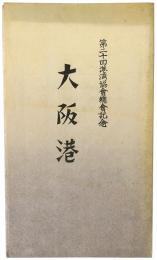 第二十回港湾協會總會記念
大阪港